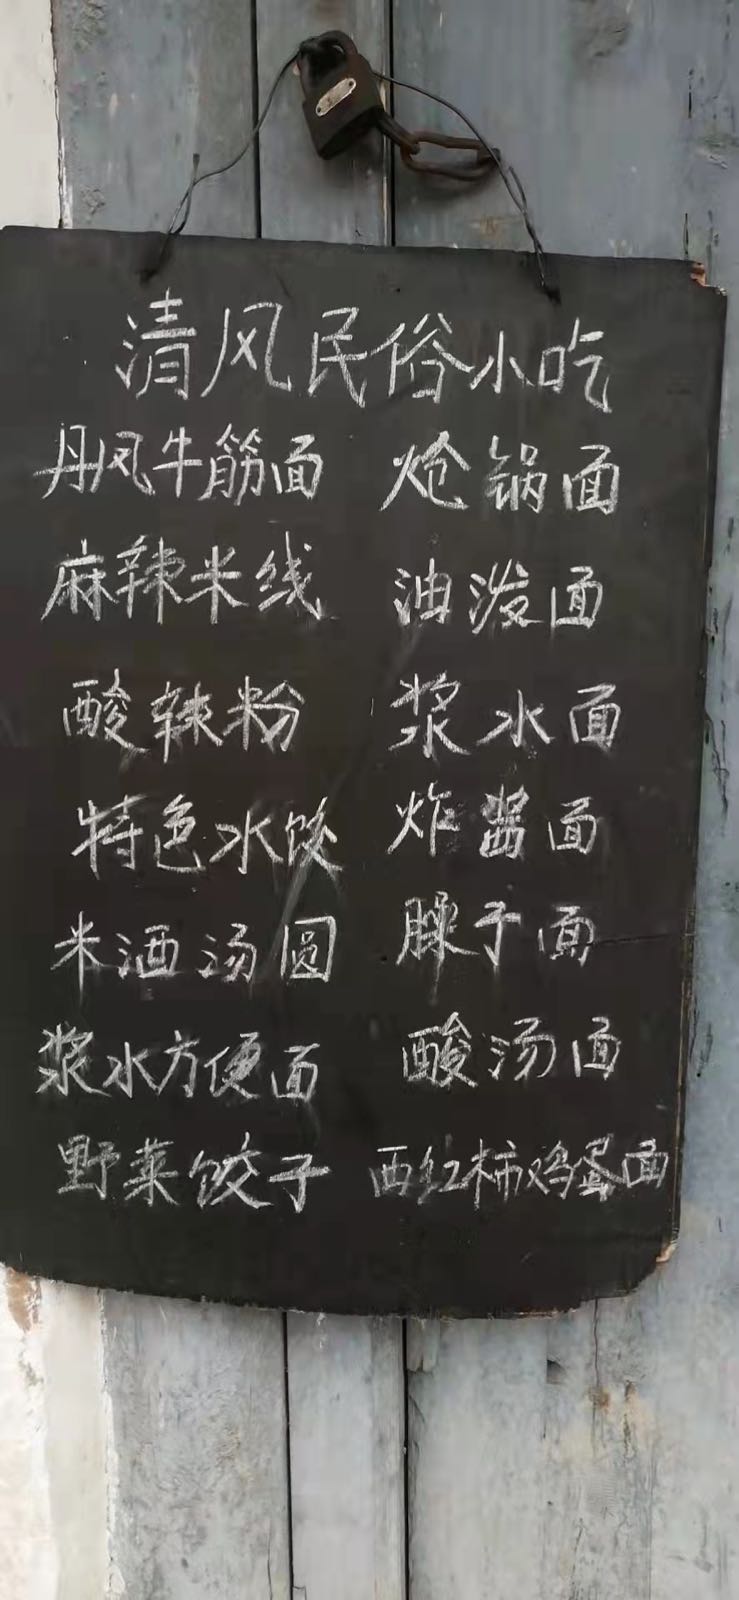 清风民俗小吃
丹凤牛筋面 炝锅面
麻辣米线 油泼面
酸辣粉 浆水面
特色水饺 炸酱面
米酒汤圆 臊子面
浆水方便面 酸汤面
野菜饺子 西红柿鸡蛋面